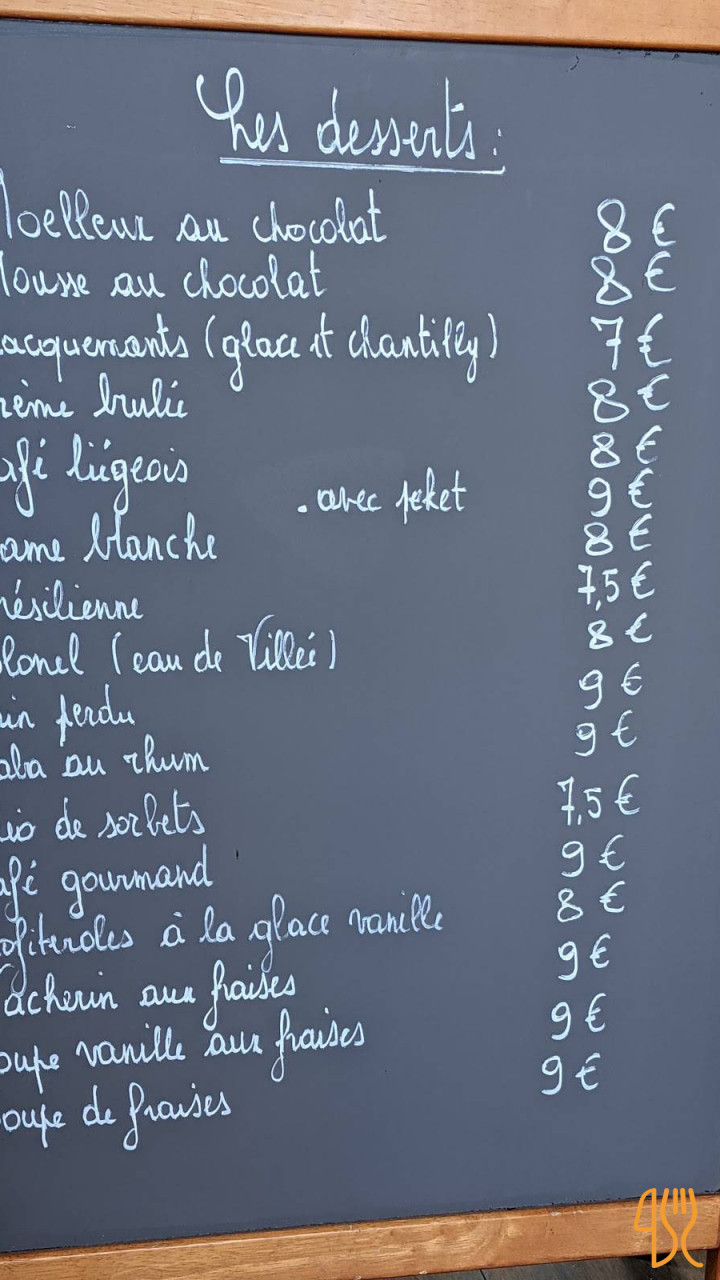 Les desserts :
Moelleux au chocolat 8 €
Mousse au chocolat 8 €
Jacquemonts (glace et chantilly) 7 €
rème brulée 8 €
afé liégeois 8 €
. avec peket 9 €
ame blanche 8 €
résilienne 7,5 €
olonel (eau de Villée) 8 €
ain perdu 9 €
aba au rhum 9 €
rio de sorbets 7,5 €
afé gourmand 9 €
ofiteroles à la glace vanille 8 €
Vacherin aux fraises 9 €
oupe vanille aux fraises 9 €
oupe de fraises 9 €